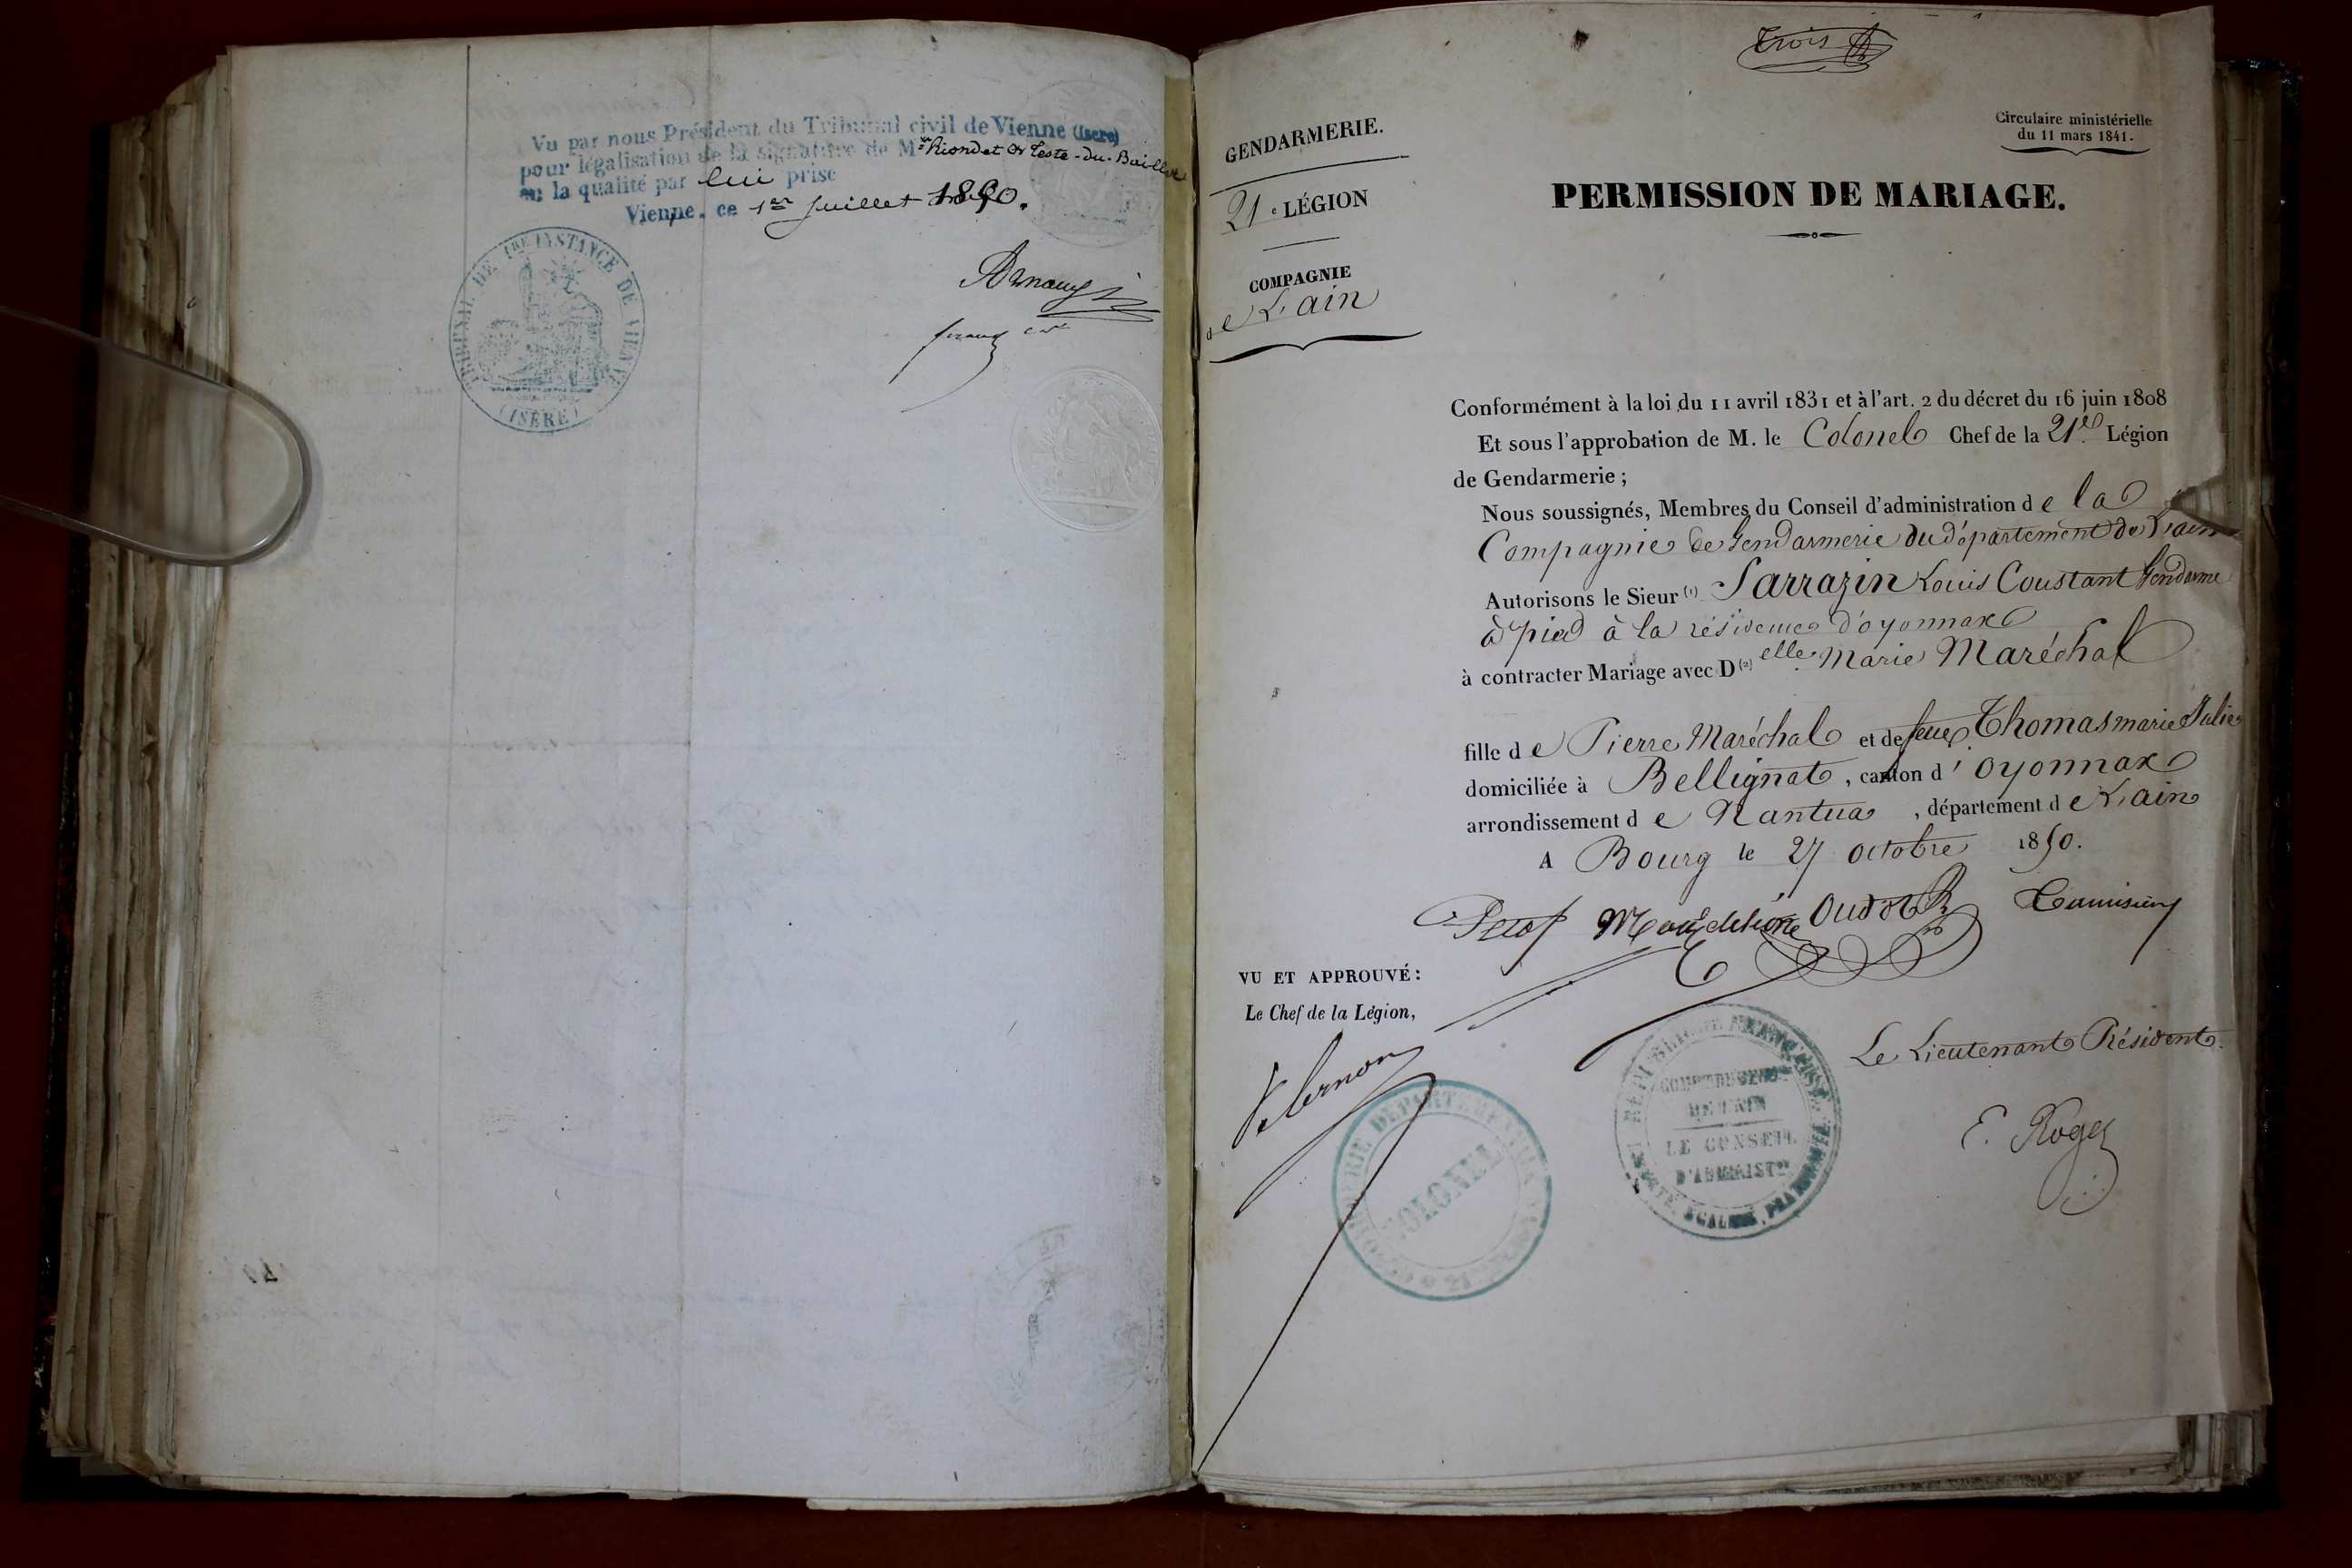 Vu par nous Président du Tribunal civil de Vienne (Isère)
pour légalisation de la signature de Mrs Riondet & Teste-du-Bailler
en la qualité par lui prise
Vienne, ce 1er Juillet 1850.
TRIBUNAL DE 1RE INSTANCE DE VIENNE
(ISÈRE)
Trois
GENDARMERIE.
21e LÉGION
COMPAGNIE
de L'ain
Circulaire ministérielle
du 11 mars 1841.
PERMISSION DE MARIAGE.
Conformément à la loi du 11 avril 1831 et à l'art. 2 du décret du 16 juin 1808
Et sous l'approbation de M. le Colonel Chef de la 21e Légion
de Gendarmerie ;
Nous soussignés, Membres du Conseil d'administration de la
Compagnie de Gendarmerie du département de L'ain
Autorisons le Sieur (1) Sarrazin Louis Coustant Gendarme
à pied à la résidence d'oyonnax
à contracter Mariage avec D(2)elle Marie Maréchal
fille de Pierre Maréchal et de feue Thomas marie Julie
domiciliée à Bellignat, canton d'oyonnax
arrondissement de Nantua, département de L'ain
A Bourg le 27 octobre 1850.
Oudot
VU ET APPROUVÉ :
Le Chef de la Légion,
Le Lieutenant Président
E. Roger
RÉPUBLIQUE FRANÇAISE
LE CONSEIL
D'ADMINIST.on
COLONEL